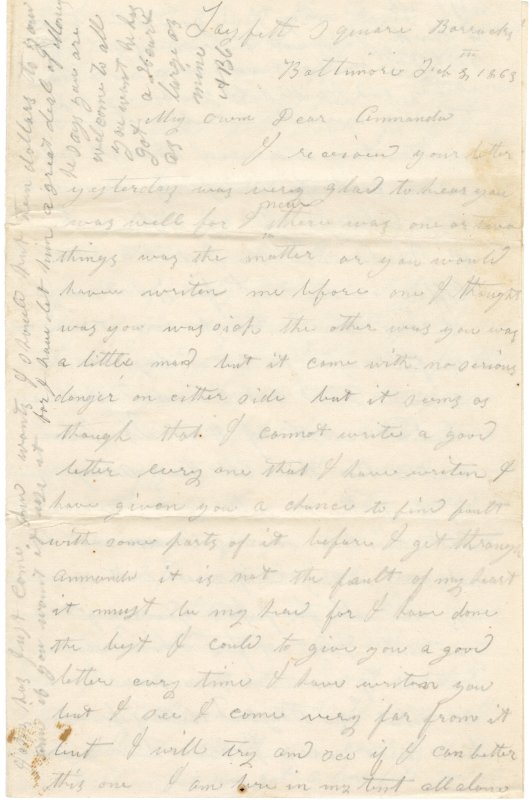 Layfett Square Barracks
Baltimore Feb 3, 1863
My own Dear Ammanda
I reacived your letter
yesterday was very glad to hear you
was well for I new there was one or two
things was the matter or you would
haven writen me before one I thought
was you was sick the other was you was
a little mad but it come with no serious
danger on either side but it seems as
though that I cannot write a good
letter every one that I have writen I
have given you a chance to find fault
with some parts of it before I get through
ammanda it is not the fault of my heart
it must be my head for I have done
the best I could to give you a good
letter every time I have writen you
but I see I come very far from it
but I will try and see if I can better
this one I am here in my tent all alone
has just come
wants I should put ten dollars to your
if you want it use it for I have let him a great deal of Money
he says you are
welcome to all
you want he has
got a heart
as large as
mine
ABC